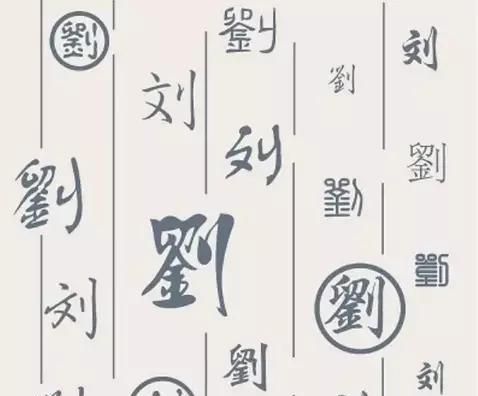 劉
劉
刘
劉
刘
刘
劉
劉
劉
劉
劉
刘
劉
劉
刘